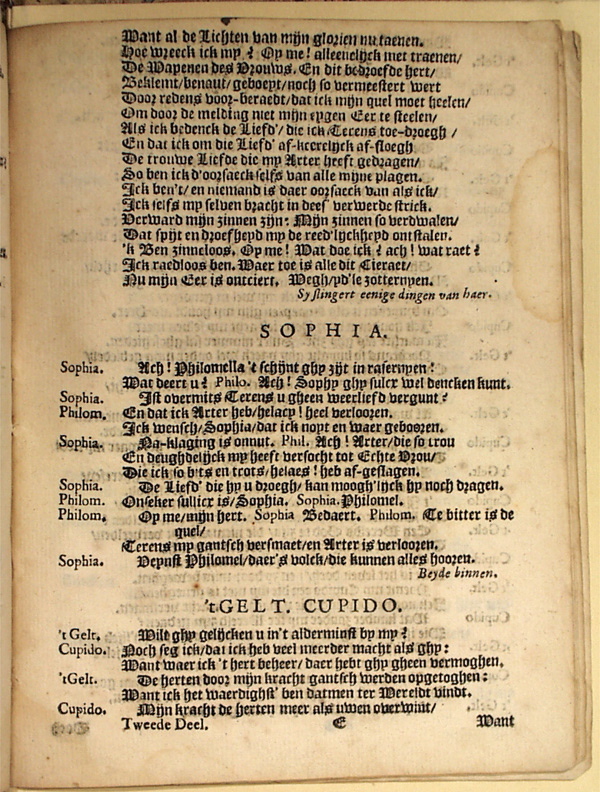 Want al de Lichten van mijn glorien nu taenen.
Hoe wreeck ick my? Oy me! alleenelijck met traenen/
De Wapenen des Vrouws. En dit bedroefde hert/
Beklemt/benaut/geboeyt/noch so vermeestert wert
Door redens voor-beraedt/dat ick mijn quel moet heelen/
Om door de melding niet mijn eygen Eer te steelen/
Als ick bedenck de Liefd'/die ick Terens toe-droegh/
En dat ick om die Liefd' af-keerelijck af-sloegh
De trouwe Liefde die my Arter heeft gedragen/
So ben ick d'oorsaeck selfs van alle mijne plagen.
Ick ben't/en niemand is daer oorsaeck van als ick/
Ick selfs my selven bracht in dees' verwerde strick.
Verward mijn zinnen zijn: Mijn zinnen so verdwalen/
Dat spijt en droefheyd my de reed'lijckheyd ontstalen.
'k Ben zinneloos. Oy me! Wat doe ick? ach! wat raet?
Ick raedloos ben. Waer toe is alle dit Cieraet/
Nu mijn Eer is ontciert. Wegh/yd'le zotternyen.
Sy slingert eenige dingen van haer.
SOPHIA.
Sophia. Ach! Philomella 't schijnt ghy zijt in rasernyen!
Wat deert u? Philo. Ach! Sophy ghy sulcx wel dencken kunt.
Sophia. Ist overmits Terens u gheen weerliefd vergunt?
Philom. En dat ick Arter heb/helacy! heel verlooren.
Ick wensch/Sophia/dat ick noyt en waer gebooren.
Sophia. Na-klaging is onnut. Phil. Ach! Arter/die so trou
En deughdelijck my heeft versocht tot Echte Vrou/
Die ick so bits en trots/helaes! heb af-geslagen.
Sophia. De Liefd' die hy u droegh/kan moogh'lijck hy noch dragen.
Philom. Onseker sullicx is/Sophia. Sophia. Philomel.
Philom. Oy me/mijn hert. Sophia Bedaert. Philom. Te bitter is de
quel/
Terens my gantsch versmaet/en Arter is verlooren.
Sophia. Veynst Philomel/daer's volck/die kunnen alles hooren.
Beyde binnen.
'tGELT. CUPIDO.
't Gelt. Wilt ghy gelijcken u in't alderminst by my?
Cupido. Noch seg ick/dat ick heb veel meerder macht als ghy:
Want waer ick 't hert beheer/daer hebt ghy gheen vermoghen.
'tGelt. De herten door mijn kracht gantsch werden opgetoghen:
Want ick het waerdighst' ben datmen ter Wereldt vindt.
Cupido. Mijn kracht de herten meer als uwen overwint/
Tweede Deel. E Want